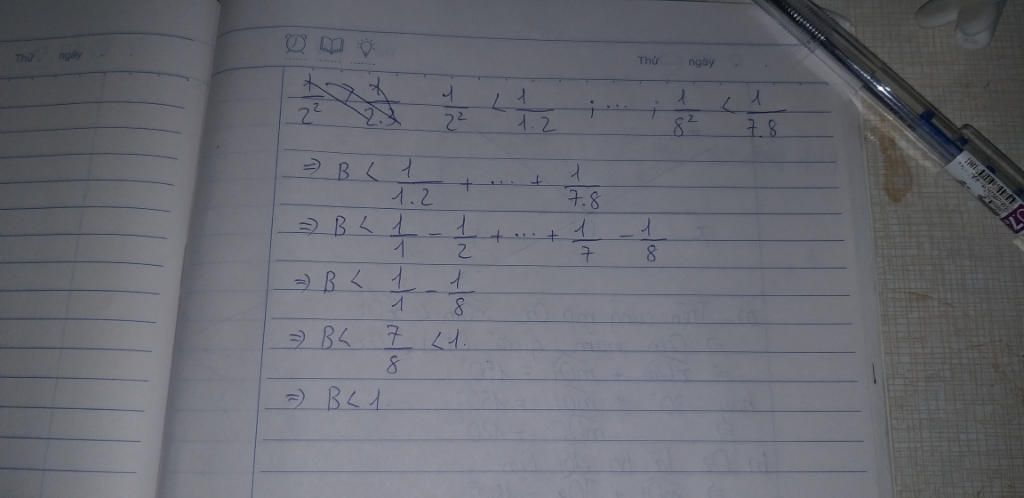 Thứ ngày
Thứ ngày
1/2² < 1/1.2 ; ... ; 1/8² < 1/7.8
=> B < 1/1.2 + ... + 1/7.8
=> B < 1/1 - 1/2 + ... + 1/7 - 1/8
=> B < 1/1 - 1/8
=> B < 7/8 < 1.
=> B < 1